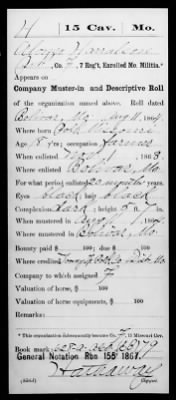 H 15 Cav. Mo.
Alonzo Hanalson
Pvt, Co. F, 7 Reg't, Enrolled Mo. Militia.*
Appears on
Company Muster-in and Descriptive Roll
of the organization named above. Roll dated
Bolivar, Mo, Aug 11, 1864.
Where born Polk Missouri
Age 18 y'rs; occupation farmer
When enlisted Nov 1, 1863.
Where enlisted Bolivar, Mo.
For what period enlisted 20 months years.
Eyes black; hair black
Complexion Dark; height
When mustered in Aug 1, 1864.
Where mustered in Bolivar, Mo.
Bounty paid $ 100; due $ 100
Where credited
Company to which assigned F
Valuation of horse, $ 100
Valuation of horse equipments, $ 100
Remarks:
*This organization subsequently became Co. F, 15 Missouri Cav.
Book mark:
General Notation Rbn 155 1867.
Hathaway
Copyist.